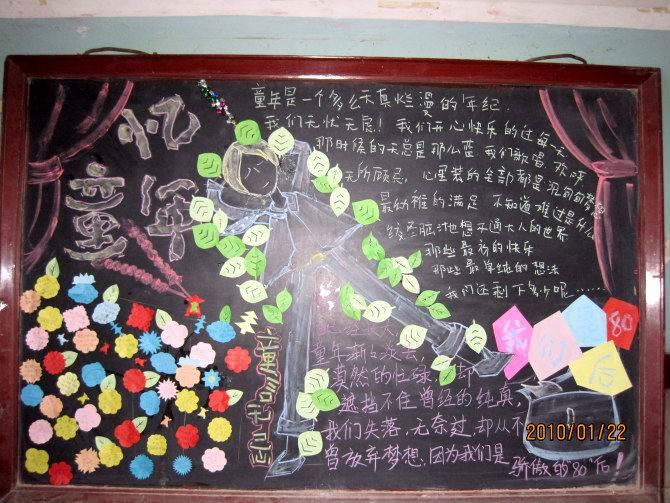 忆童年
童年是一个多么天真烂漫的年纪.
我们无忧无虑！我们开心快乐的过每一天
那时候的天总是那么蓝 我们歌唱 欢呼
无所顾忌 心里装的全部都是
最幼稚的满足 不知道难过是什么
绞尽脑汁也想不通大人的世界
那些最初的快乐
那些最单纯的想法
我们还剩下多少呢……
我们80后
童年渐渐淡去,
漠然的忙碌 却
遮挡不住曾经的纯真,
我们失落,无奈过,却从不
曾放弃梦想,因为我们是 骄傲的80后！
2010/01/22